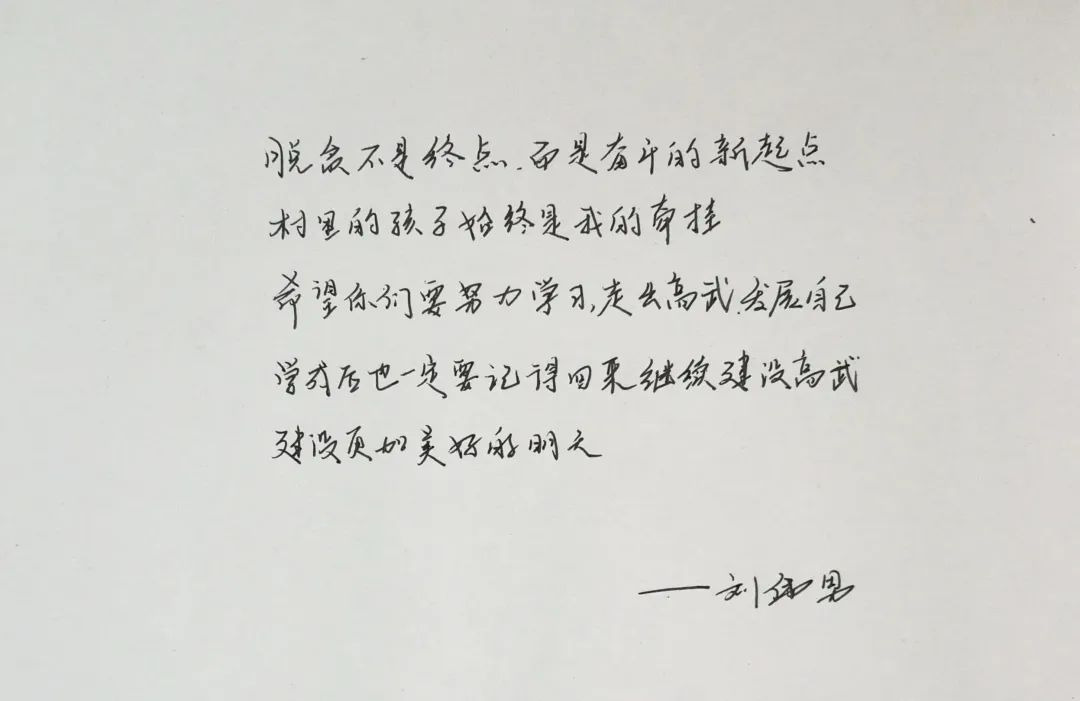 脱贫不是终点,而是奋斗的新起点
村里的孩子始终是我的牵挂
希望你们要努力学习,走出高武,发展自己
学成后也一定要记得回来继续建设高武
建设更加美好的明天
——刘男